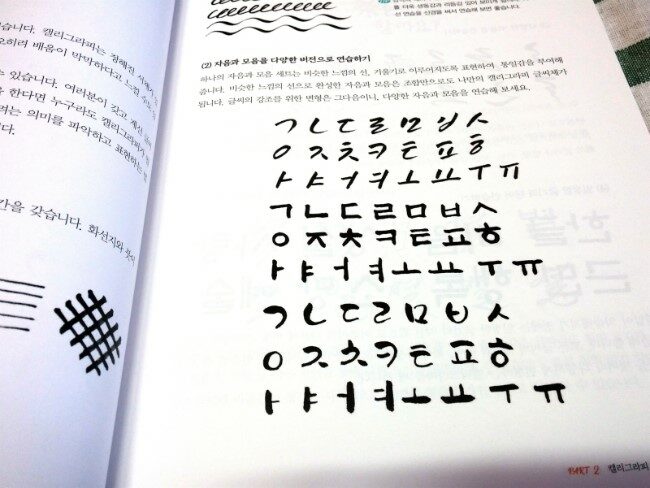 습니다. 캘리그라피는 정해진
오히려 배움이 막막하다고 느낄 수도
수 있습니다. 여러분이 갖고 계신
을 한다면 누구라도 캘리그라피가
려는 의미를 파악하고 표현하는
다.
간을 갖습니다. 화선지와 붓이
를 더욱 생동감과 리듬감 있어 보이게 합니다
선 연습을 신경을 써서 연습해 보면 좋습니다.
(2) 자음과 모음을 다양한 버전으로 연습하기
하나의 자음과 모음 세트는 비슷한 느낌의 선, 기울기로 이루어지도록 표현하여 통일감을 부여해
줍니다. 비슷한 느낌의 선으로 완성한 자음과 모음은 조합만으로도 나만의 캘리그라피 글씨체가
됩니다. 글씨의 강조를 위한 변형은 그다음이니, 다양한 자음과 모음을 연습해 보세요.
ㄱ ㄴ ㄷ ㄹ ㅁ ㅂ ㅅ
ㅇ ㅈ ㅊ ㅋ ㅌ ㅍ ㅎ
ㅏ ㅑ ㅓ ㅕ ㅗ ㅛ ㅜ ㅠ
ㄱ ㄴ ㄷ ㄹ ㅁ ㅂ ㅅ
ㅇ ㅈ ㅊ ㅋ ㅌ ㅍ ㅎ
ㅏ ㅑ ㅓ ㅕ ㅗ ㅛ ㅜ ㅠ
ㄱ ㄴ ㄷ ㄹ ㅁ ㅂ ㅅ
ㅇ ㅈ ㅊ ㅋ ㅌ ㅍ ㅎ
ㅏ ㅑ ㅓ ㅕ ㅗ ㅛ ㅜ ㅠ
PART 2 캘리그라피